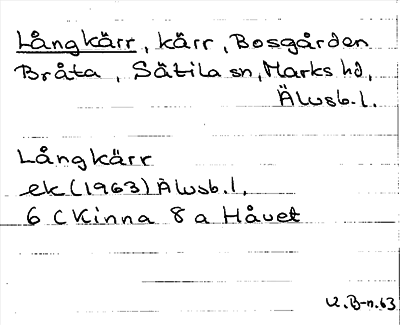 Långkärr, kärr, Bosgården
Bråta, Sätila sn, Marks hd,
Älvsb.l.
Långkärr
ek (1963) Älvsb.l.
6 C Kinna 8 a Håvet
V.B-n.63